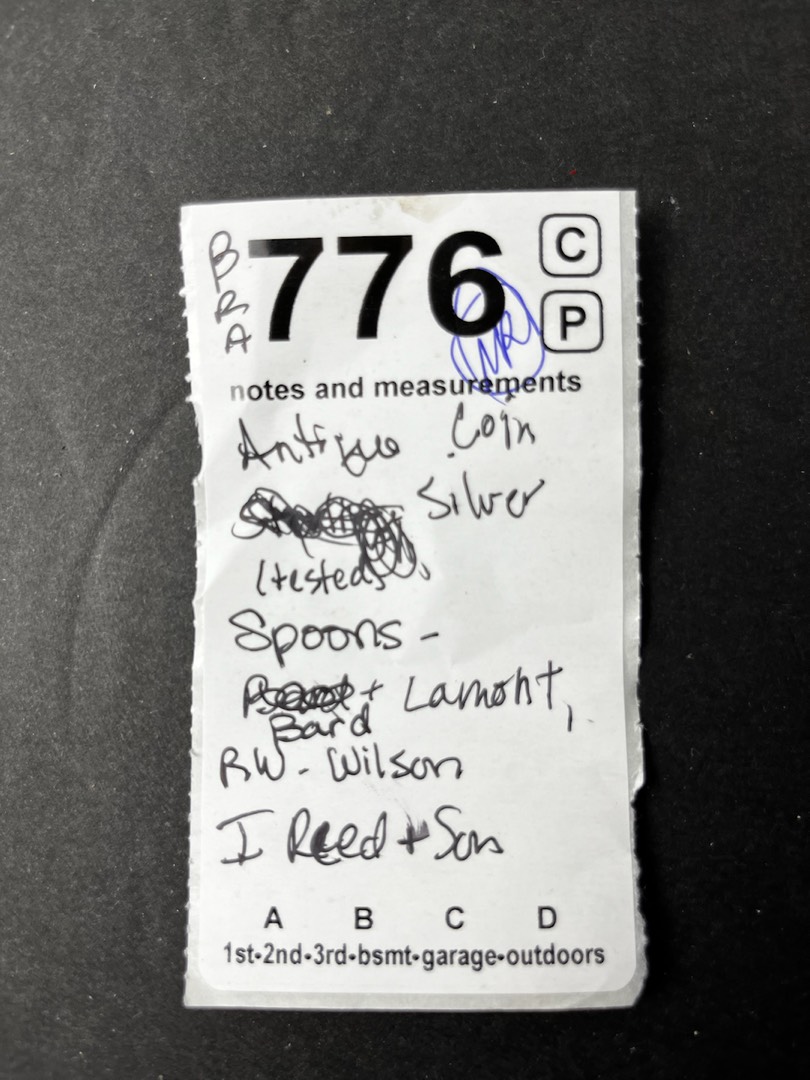 BRA
776
C
P
notes and measurements
Antique Coin
Silver
(tested)
Spoons -
+ Lamont,
Bard
RW - Wilson
I Reed + Son
A B C D
1st-2nd-3rd-bsmt-garage-outdoors